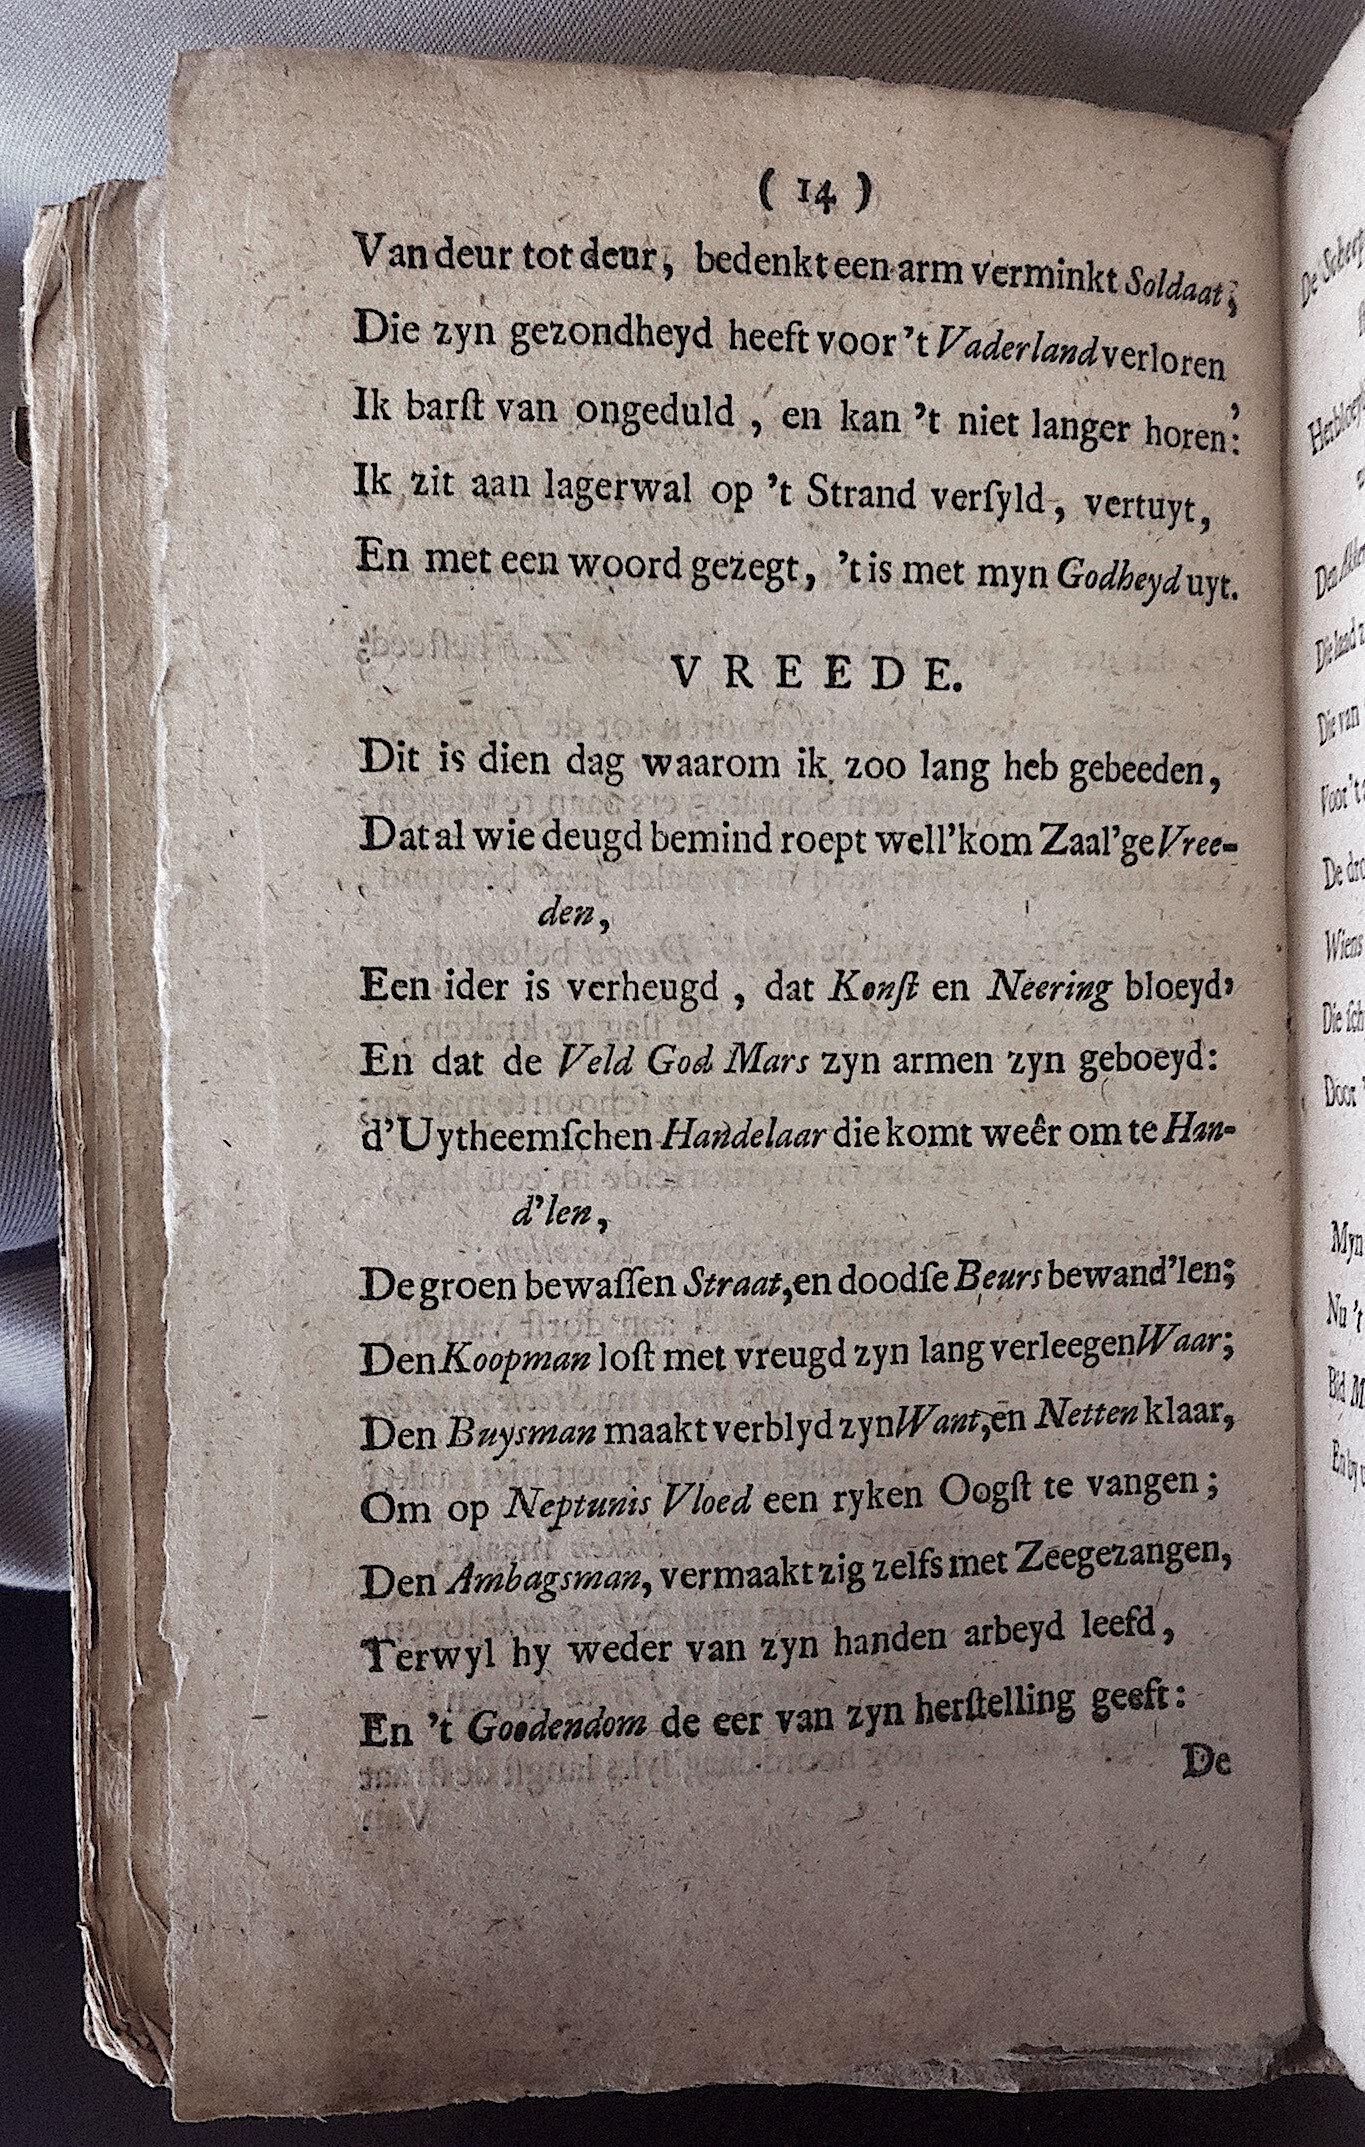 ( 14 )
Van deur tot deur, bedenkt een arm verminkt Soldaat;
Die zyn gezondheyd heeft voor 't Vaderland verloren,
Ik barſt van ongeduld, en kan 't niet langer horen:
Ik zit aan lagerwal op 't Strand verſyld, vertuyt,
En met een woord gezegt, 't is met myn Godheyd uyt.
VREEDE.
Dit is dien dag waarom ik zoo lang heb gebeeden,
Dat al wie deugd bemind roept well'kom Zaal'ge Vree-
den,
Een ider is verheugd, dat Konſt en Neering bloeyd,
En dat de Veld God Mars zyn armen zyn geboeyd:
d'Uytheemſchen Handelaar die komt weêr om te Han-
d'len,
De groen bewaſſen Straat, en doodſe Beurs bewand'len;
Den Koopman loſt met vreugd zyn lang verleegen Waar;
Den Buysman maakt verblyd zyn Want, en Netten klaar,
Om op Neptunis Vloed een ryken Oogſt te vangen;
Den Ambagsman, vermaakt zig zelfs met Zeegezangen,
Terwyl hy weder van zyn handen arbeyd leefd,
En 't Goodendom de eer van zyn herſtelling geeft:
De
De
Den
Die laad
Die van
Voor 't
De
Wiens
Die
Door
Myn
Nu 't
Bid
En by